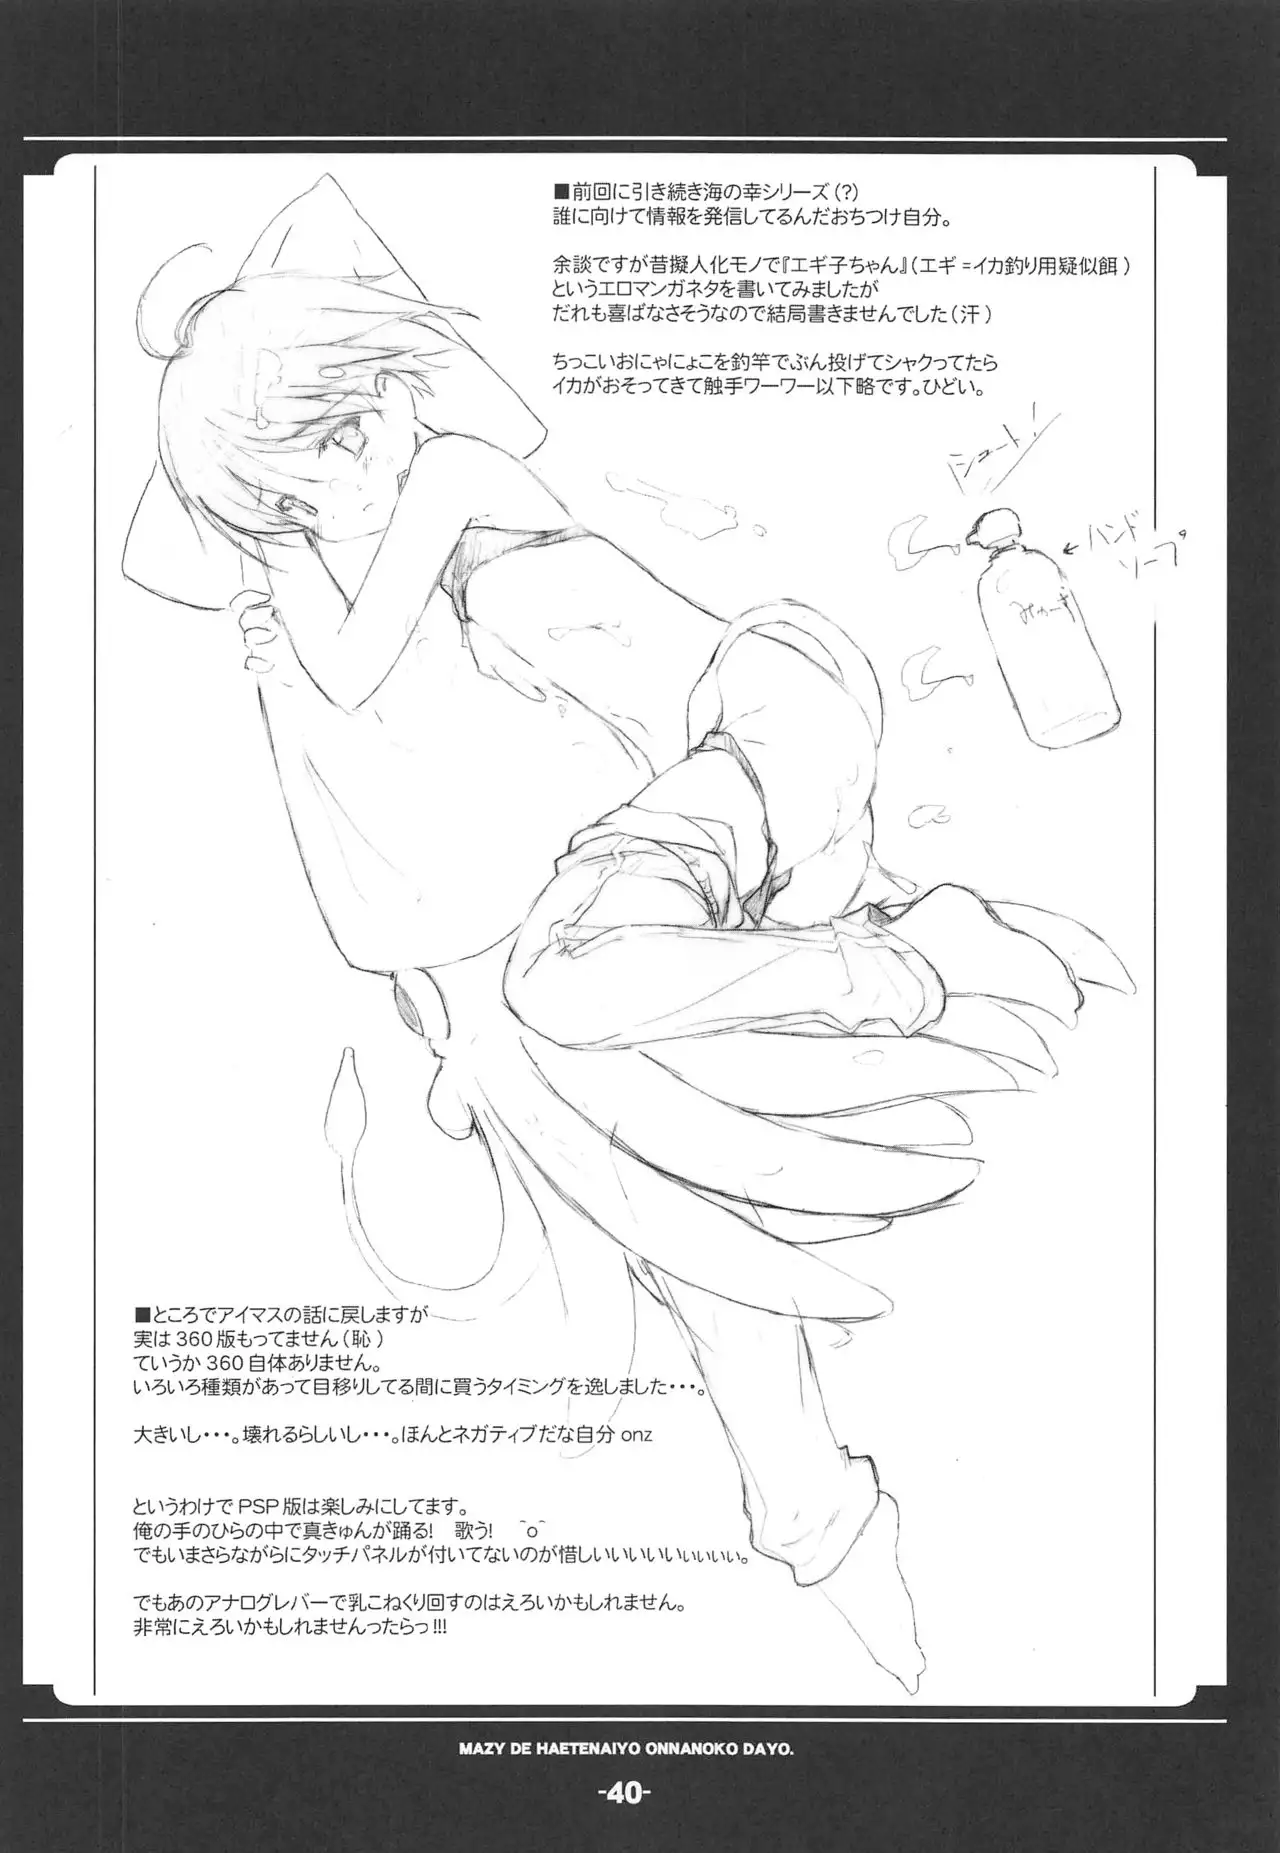 ■前回に引き続き海の幸シリーズ(?)
誰に向けて情報を発信してるんだおちつけ自分。
余談ですが昔擬人化モノで『エギ子ちゃん』(エギ=イカ釣り用疑似餌)
というエロマンガネタを書いてみましたが
だれも喜ばなさそうなので結局書きませんでした(汗)
ちっこいおにゃにょこを釣竿でぶん投げてシャクってたら
イカがおそってきて触手ワーワー以下略です。ひどい。
シュート!
←ハンド
ソープ
みゅーず
■ところでアイマスの話に戻しますが
実は360版もってません(恥)
ていうか360自体ありません。
いろいろ種類があって目移りしてる間に買うタイミングを逸しました・・・。
大きいし・・・。壊れるらしいし・・・。ほんとネガティブだな自分 onz
というわけでPSP版は楽しみにしてます。
俺の手のひらの中で真きゅんが踊る! 歌う! ＾o＾
でもいまさらながらにタッチパネルが付いてないのが惜しいいいいいいぃぃぃぃ。
でもあのアナログレバーで乳こねくり回すのはえろいかもしれません。
非常にえろいかもしれませんったらっ!!!
MAZY DE HAETENAIYO ONNANOKO DAYO.
-40-